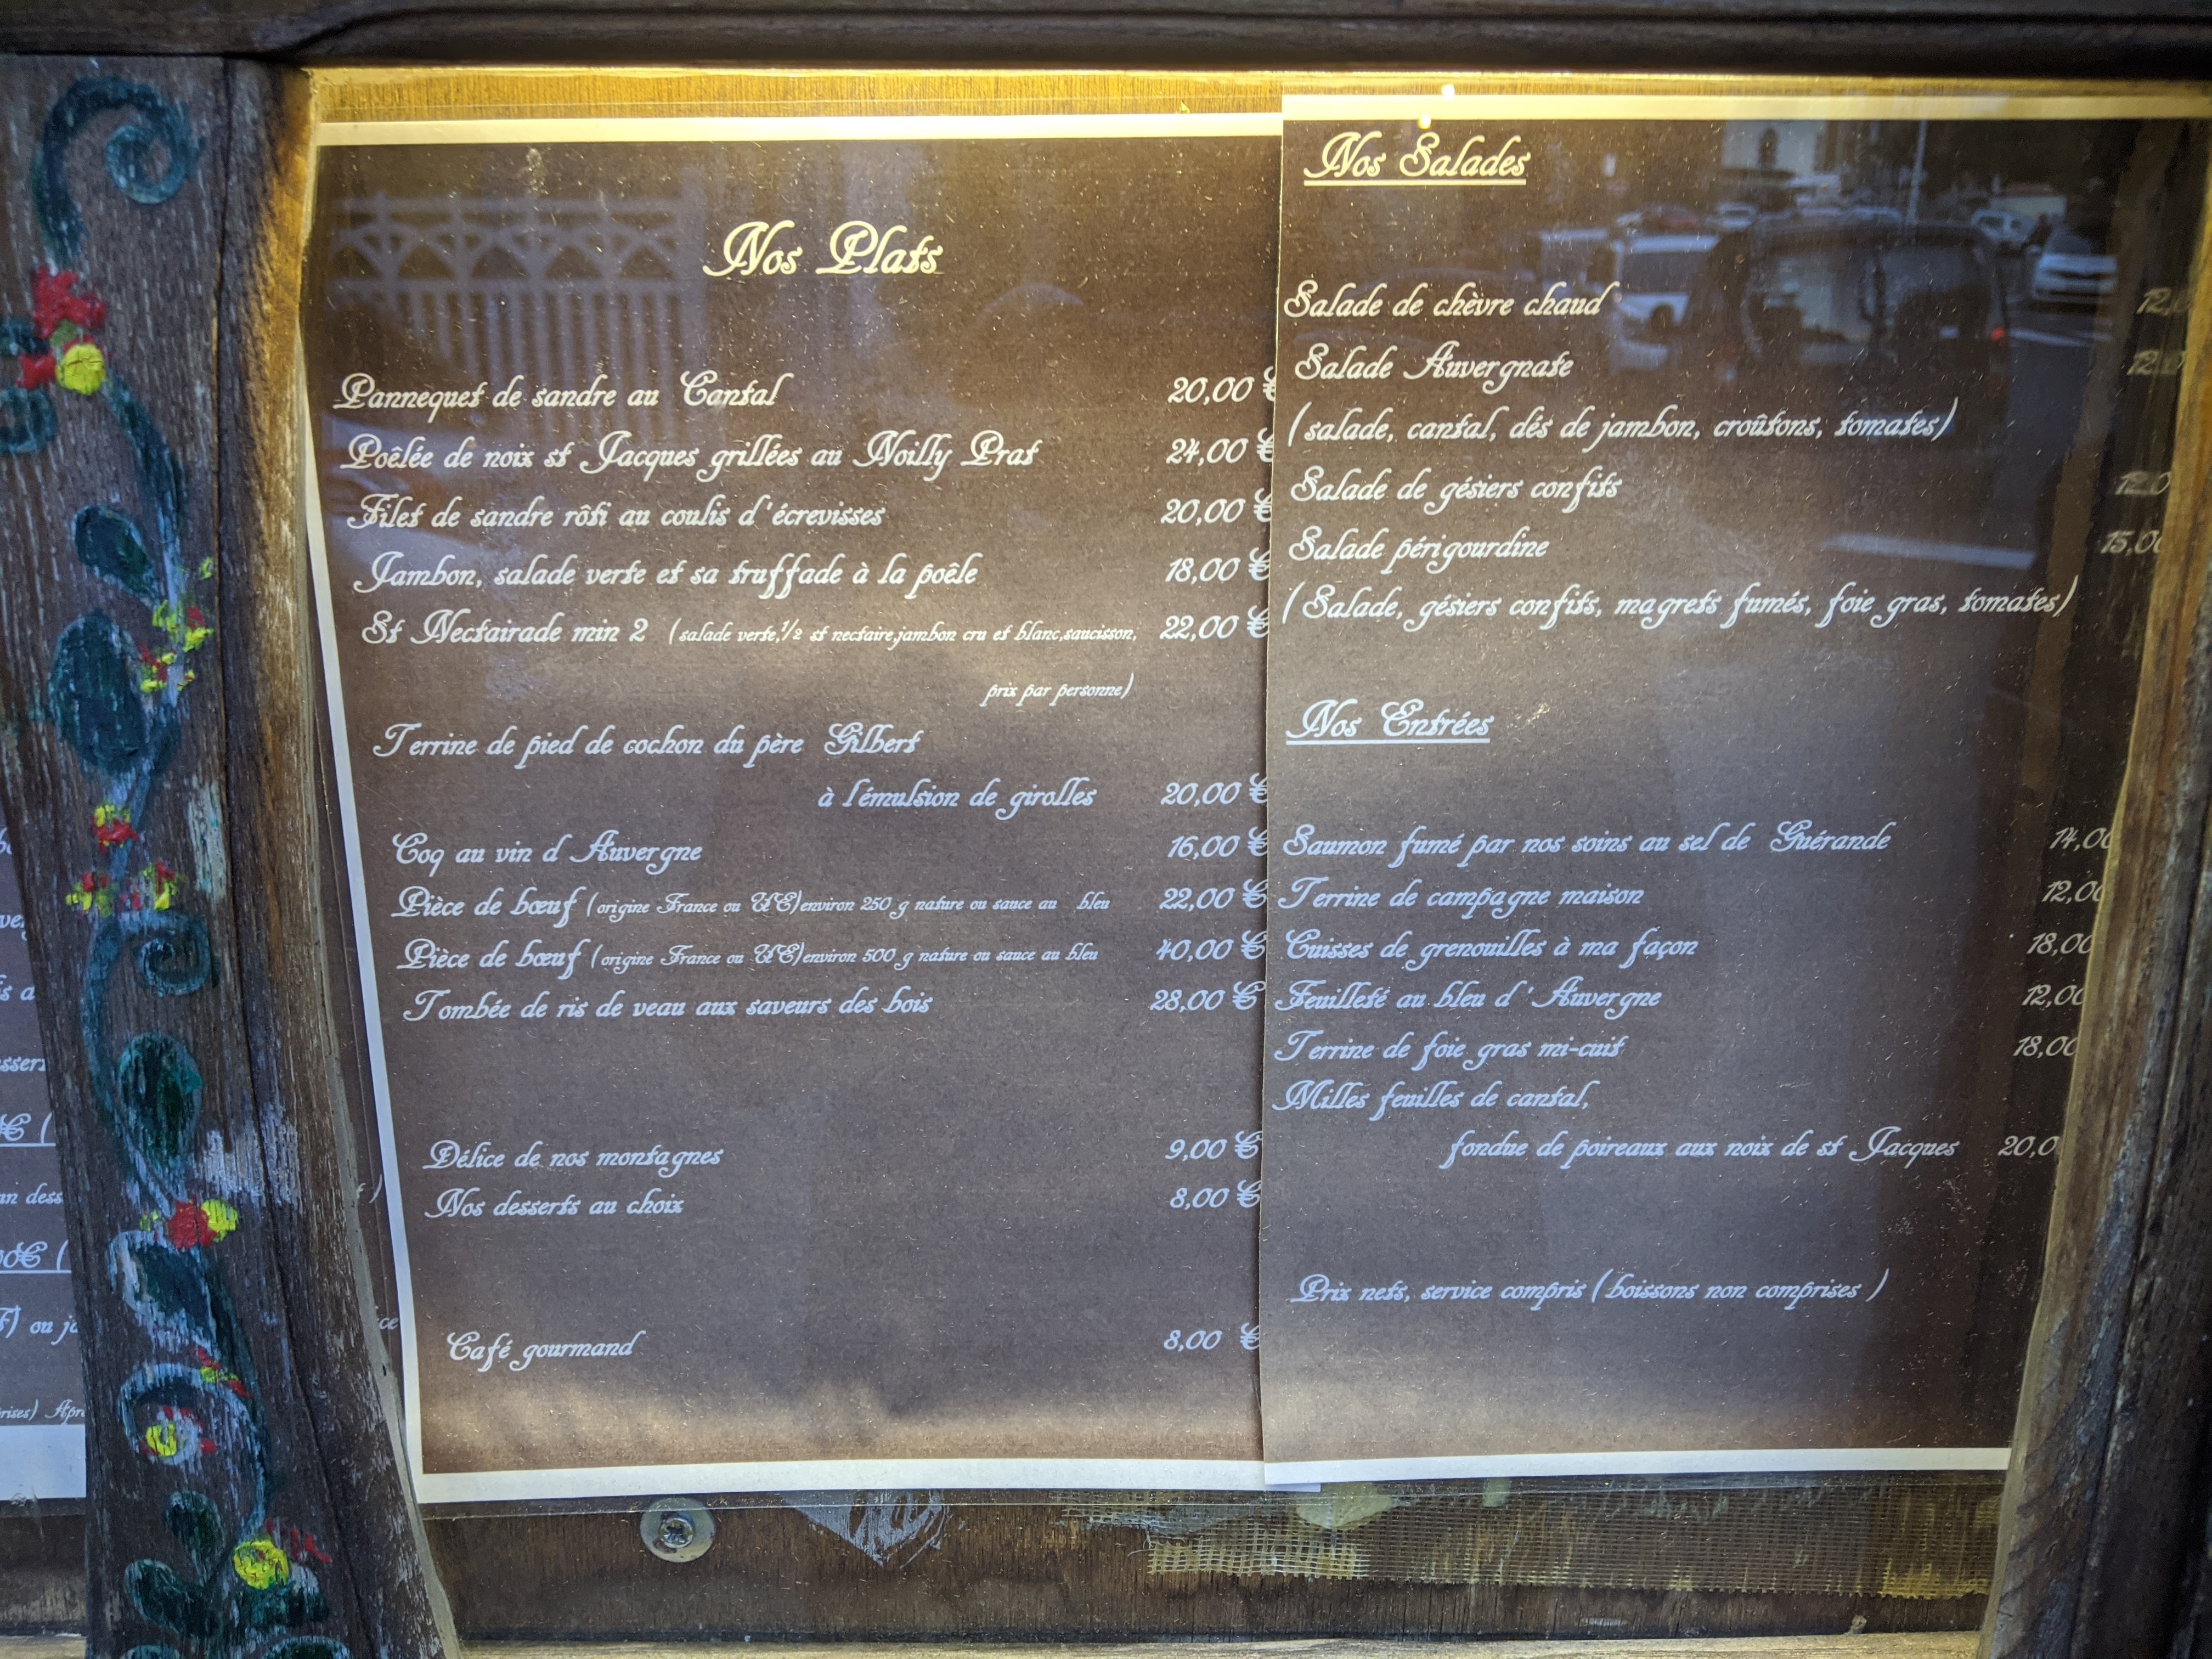 Nos Plats
Pannequet de sandre au Cantal 20,00 €
Poêlée de noix st Jacques grillées au Noilly Prat 24,00 €
Filet de sandre rôti au coulis d'écrevisses 20,00 €
Jambon, salade verte et sa truffade à la poêle 18,00 €
St Nectairade min 2 (salade verte,½ st nectaire,jambon cru et blanc,saucisson, 22,00 €
prix par personne)
Terrine de pied de cochon du père Gilbert
à l'émulsion de girolles 20,00 €
Coq au vin d Auvergne 16,00 €
Pièce de bœuf (origine France ou UE)environ 250 g nature ou sauce au bleu 22,00 €
Pièce de bœuf (origine France ou UE)environ 500 g nature ou sauce au bleu 40,00 €
Tombée de ris de veau aux saveurs des bois 28,00 €
Délice de nos montagnes 9,00 €
Nos desserts au choix 8,00 €
Café gourmand 8,00 €
Nos Salades
Salade de chèvre chaud 12,0
Salade Auvergnate 12,0
(salade, cantal, dés de jambon, croûtons, tomates)
Salade de gésiers confits 12,0
Salade périgourdine 15,00
(Salade, gésiers confits, magrets fumés, foie gras, tomates)
Nos Entrées
Saumon fumé par nos soins au sel de Guérande 14,00
Terrine de campagne maison 12,00
Cuisses de grenouilles à ma façon 18,00
Feuilleté au bleu d'Auvergne 12,00
Terrine de foie gras mi-cuit 18,00
Milles feuilles de cantal,
fondue de poireaux aux noix de st Jacques 20,0
Prix nets, service compris (boissons non comprises )